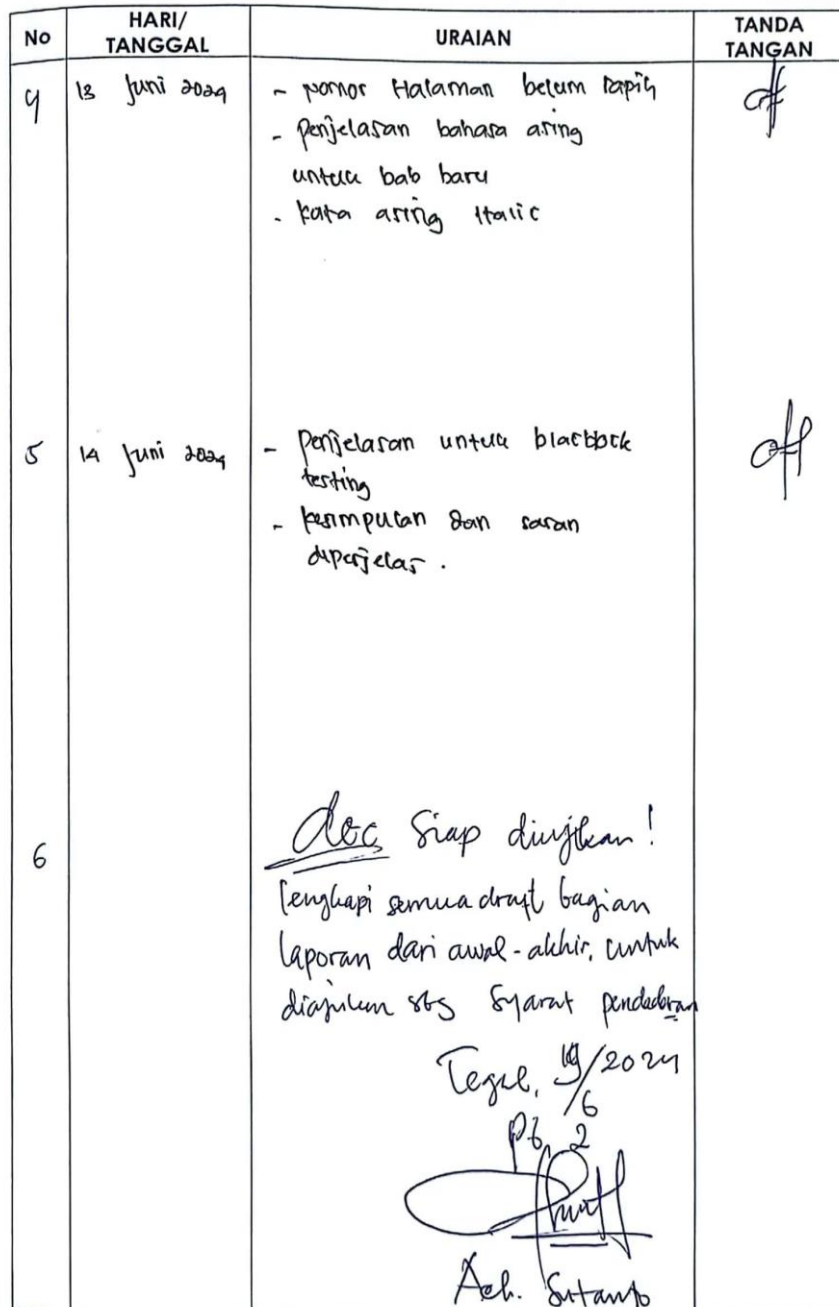 No HARI/ TANGGAL URAIAN TANDA TANGAN
4 13 Juni 2024 - Nomor Halaman belum Rapih
- Penjelasan bahasa asing
untuk bab baru
- kata asing Italic
5 14 Juni 2024 - Penjelasan untuk blackbock
testing
- kesimpulan dan saran
diperjelas.
6 Siap diujikan!
lengkapi semua draft bagian
laporan dari awal - akhir, untuk
diajukan sbg Syarat pendadaran
Tegal, 19/6 2024
Pb 2
Ach. Sutanto